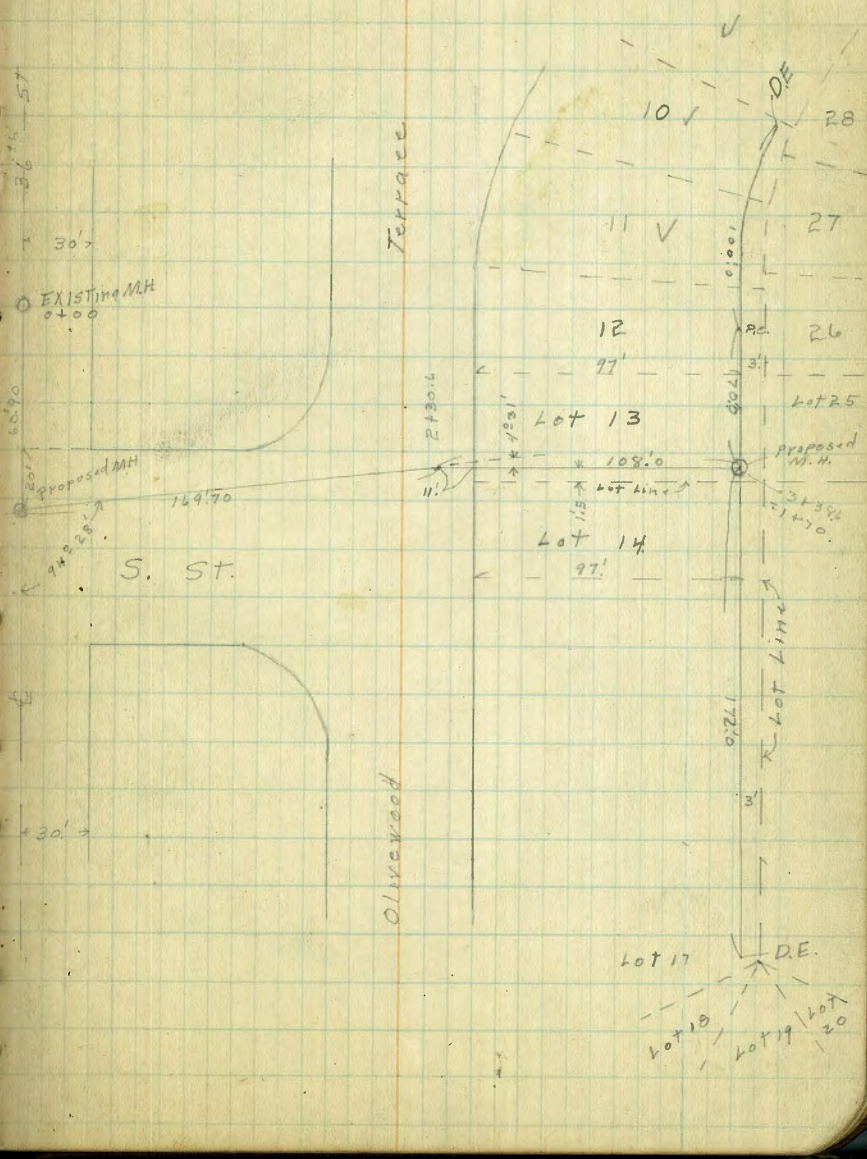 36th St
30'
EXISTING M.H
0+00
60.90
20'
Proposed MH
94° 28'
169.70
S. St.
℄
30'
Terrace
Olivewood
2+30.6
11'
4°31'
10
28
11
27
12
26
97'
Lot 13
Lot 25
108.0
Lot Line
1.5
Lot 14
97'
D.E
100.0
P.C.
3'
170.0
Proposed
M.H.
3+38.6
1+70
Lot Line
172.0
3'
Lot 17
D.E.
Lot 18
Lot 19
Lot
20